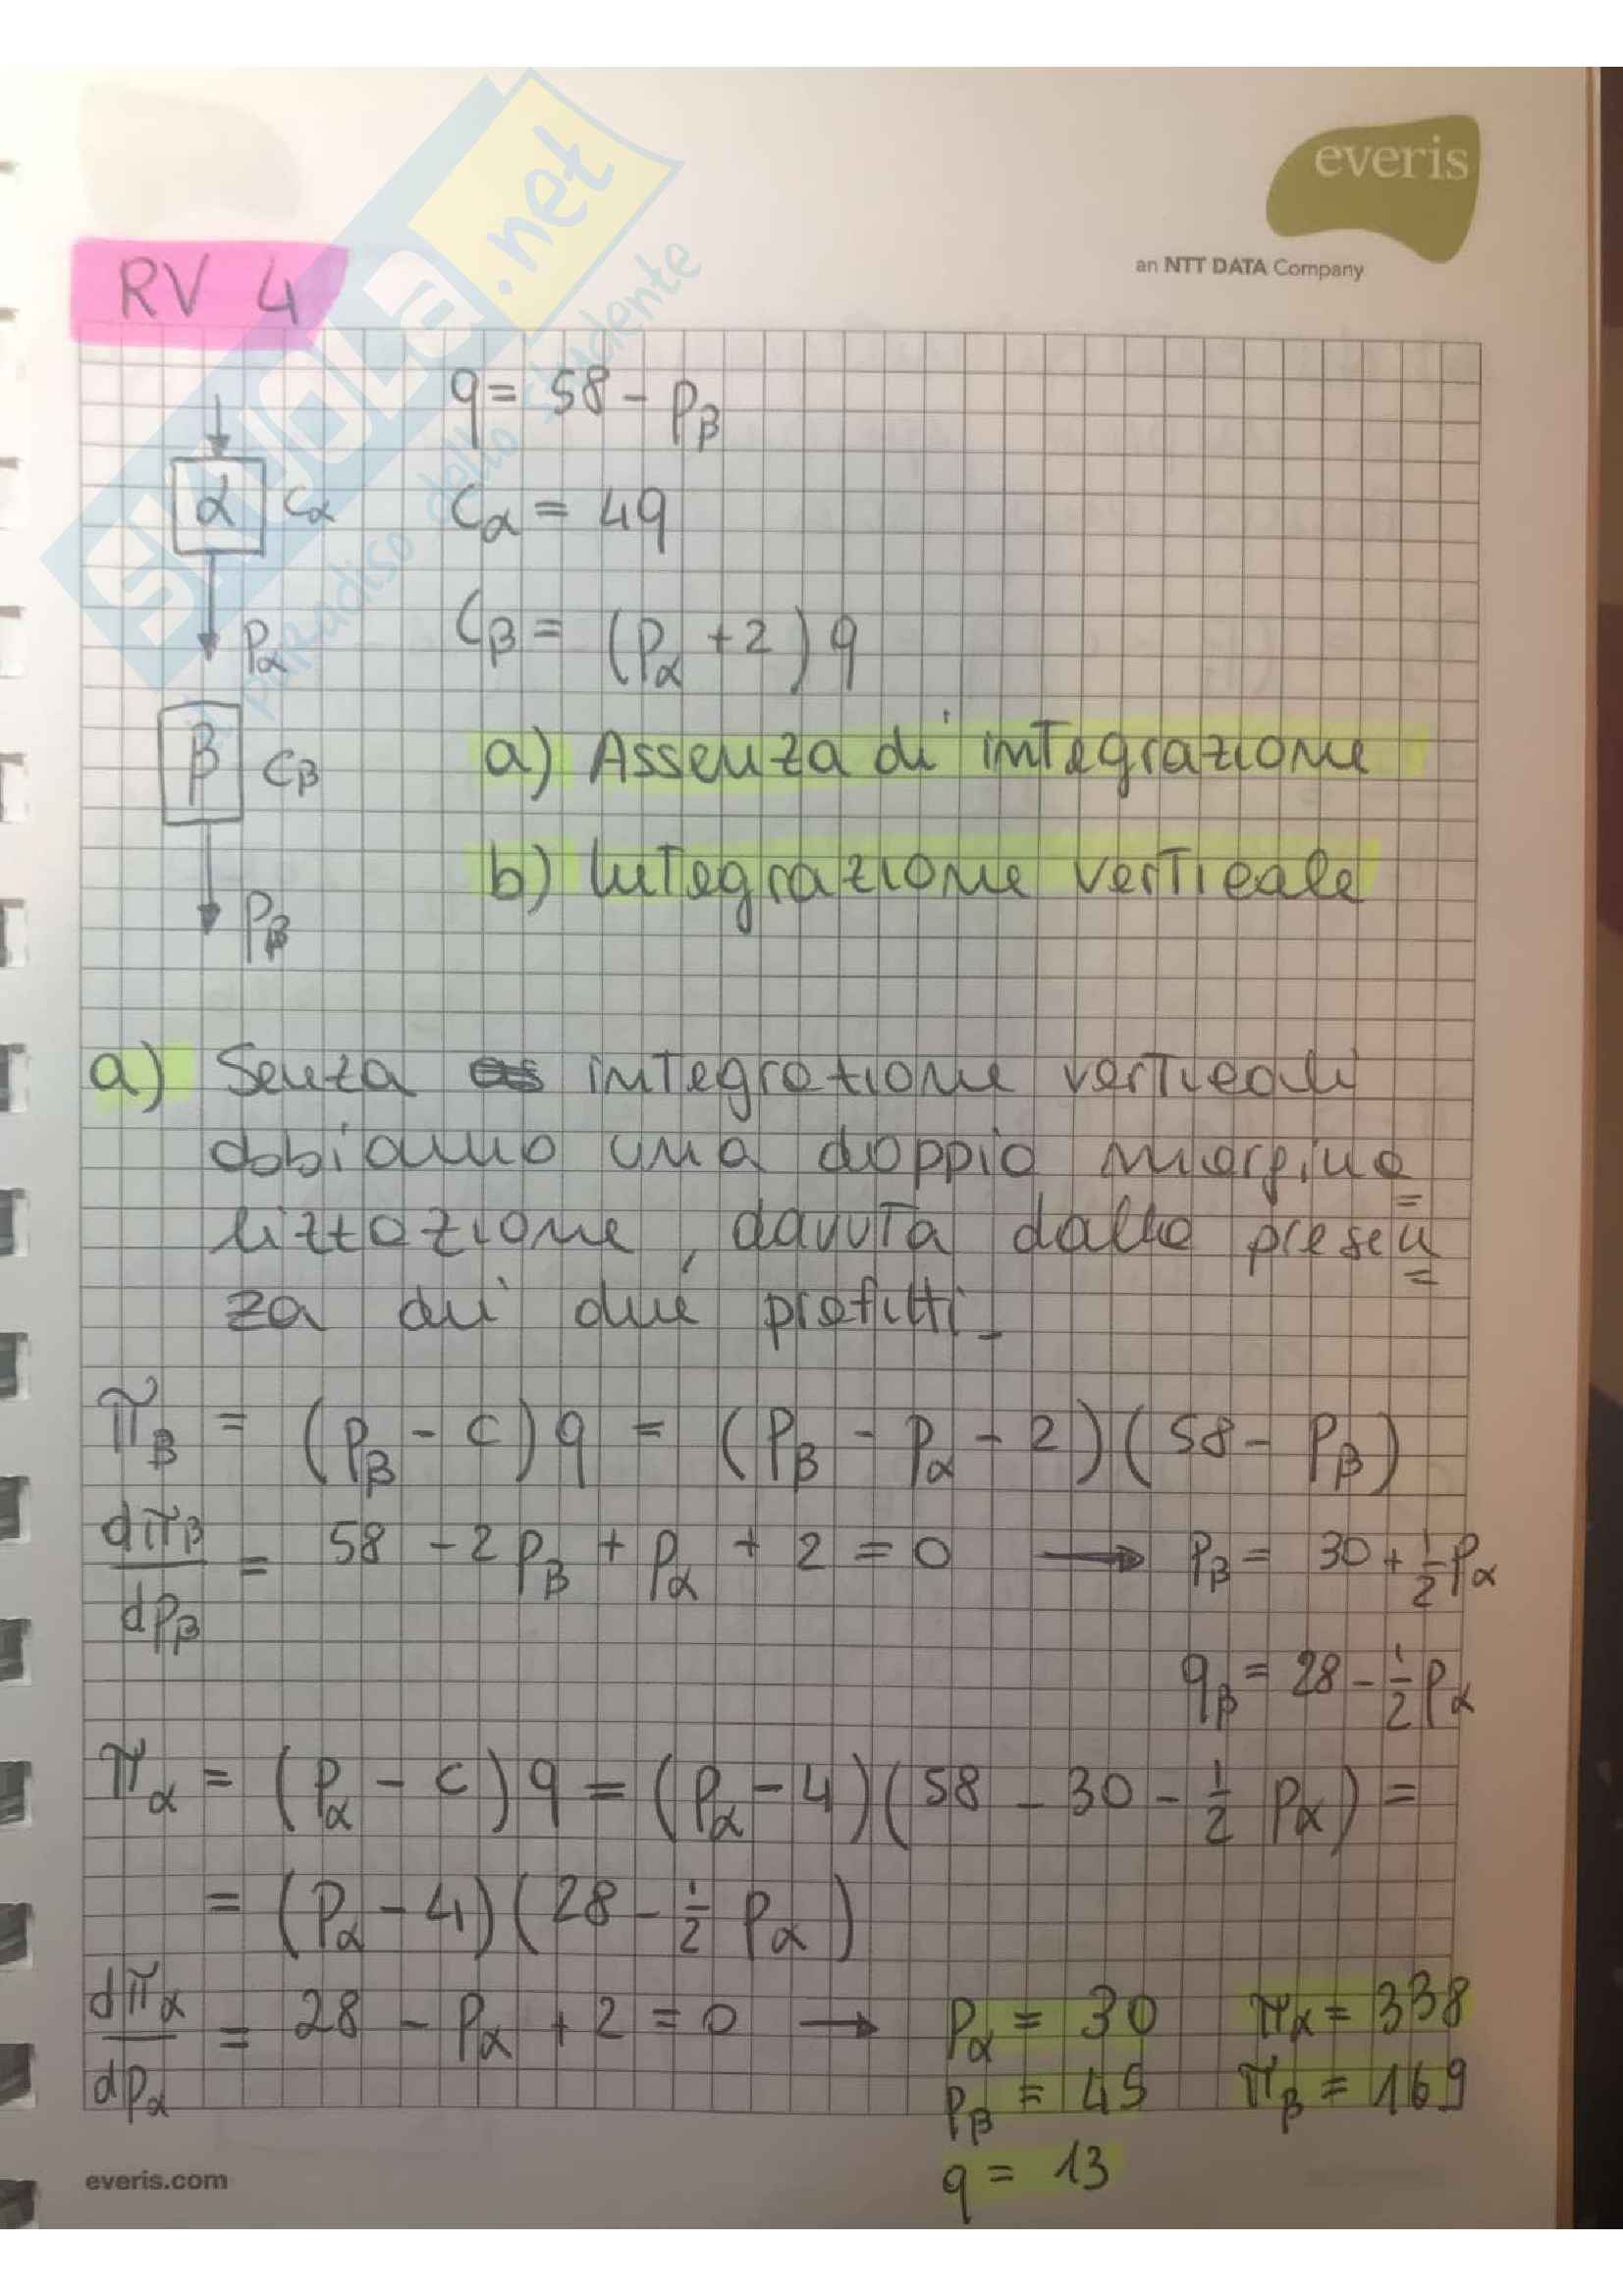 everis
an NTT DATA Company
SKUOLA.net
il paradiso dello studente
RV 4
q = 58 - pβ
α cα
cα = 4q
pα
cβ = (pα + 2) q
β cβ
a) Assenza di integrazione
b) Integrazione verticale
pβ
a) Senza integrazione verticali
dobiamo una doppia margina
lizzazione, davuta dalla presen
za di due profitti
πβ = (pβ - c) q = (pβ - pα - 2)(58 - pβ)
dπβ/dpβ = 58 - 2pβ + pα + 2 = 0 → pβ = 30 + 1/2 pα
qβ = 28 - 1/2 pα
πα = (pα - c) q = (pα - 4)(58 - 30 - 1/2 pα) =
= (pα - 4)(28 - 1/2 pα)
dπα/dpα = 28 - pα + 2 = 0 → pα = 30 πα = 338
pβ = 45 πβ = 169
q = 13
everis.com